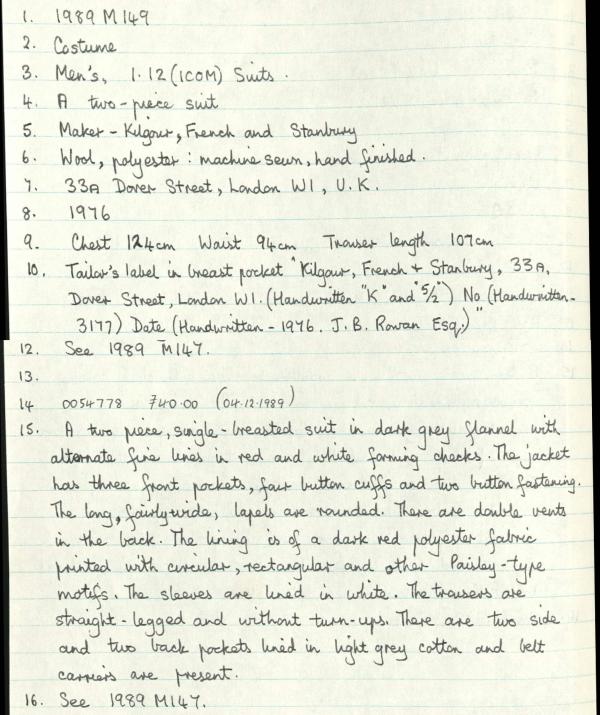 1. 1989 M149
2. Costume
3. Men's, 1.12 (ICOM) Suits.
4. A two-piece suit
5. Maker - Kilgour, French and Stanbury
6. Wool, polyester : machine sewn, hand finished.
7. 33A Dover Street, London W1, U.K.
8. 1976
9. Chest 124cm Waist 94cm Trouser length 107cm
10. Tailor's label in breast pocket "Kilgour, French + Stanbury, 33A,
Dover Street, London W1. (Handwritten "K" and "5/2") No (Handwritten-
3177) Date (Handwritten - 1976. J.B. Rowan Esq.)"
12. See 1989 M147.
13.
14 0054778 740.00 (04.12.1989)
15. A two piece, single-breasted suit in dark grey flannel with
alternate fine lines in red and white forming checks. The jacket
has three front pockets, four button cuffs and two button fastening.
The long, fairly wide, lapels are rounded. There are double vents
in the back. The lining is of a dark red polyester fabric
printed with circular, rectangular and other Paisley-type
motifs. The sleeves are lined in white. The trousers are
straight-legged and without turn-ups. There are two side
and two back pockets lined in light grey cotton and belt
carriers are present.
16. See 1989 M147.